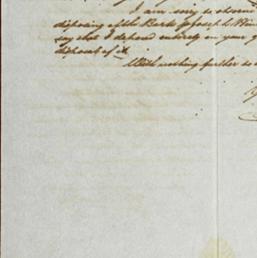 I am sorry to observe
disposing of the Bark Joseph
say that I depend entirely on your
disposal of it.
With nothing further to